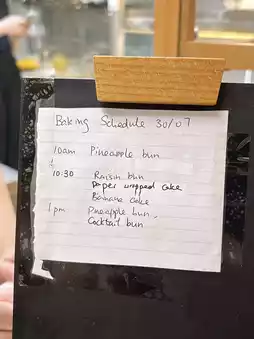 Baking Schedule 30/07
10am Pineapple bun
10:30 Raisin bun
Paper wrapped cake
Banana cake
1pm Pineapple bun
Cocktail bun